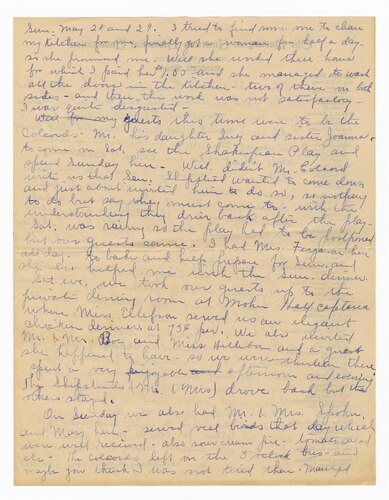 Sun. May 28 and 29. I tried to find some one to clean
my kitchen for me, finally got a woman for half a day.
so she promised me. Well she worked three hours
for which I paid her 1.05 and she managed to wash
all the doors in the kitchen - two of them on both
sides - and then the work was not satisfactory.
I was quite disgusted -
guests this time were to be the
Colcords - Mr. his daughter and sister Joanna,
to come on Sat., see the Shakespeare Play and
spend Sunday here - Well didn't Mr. Colcord
write us that Sen. Shipstead wanted to come down
and just about invited him to do so, so nothing
to do but say they must come to - with the
understanding they drive back after the play.
Sat. was rainy so the play had to be postponed
but our guests came. I had Mrs. Ferguson here
all day - to bake and help prepare for Sunday and
she also helped me with the Sun. dinner.
Sat. eve. we took our guests up to the
private dining room at Mohn Hall cafeteria
where Miss Ellefson served us an elegant
chicken dinner at 75¢ per. We also invited
Mr. & Mrs. Boe and Miss Hilleboe and a guest
she happened to have - so we were thirteen there
spent a very afternoon and evening
The Shipsteads (Mr. & Mrs) drove back but the
others stayed.
On Sunday we also had Mr. & Mrs. Spohn,
and Mary here - served veal birds that day which
were well received - also sour cream pie - tomato salad
etc - The Colcords left on the 5 o'clock bus - and
maybe you think I was not tired then - Managed